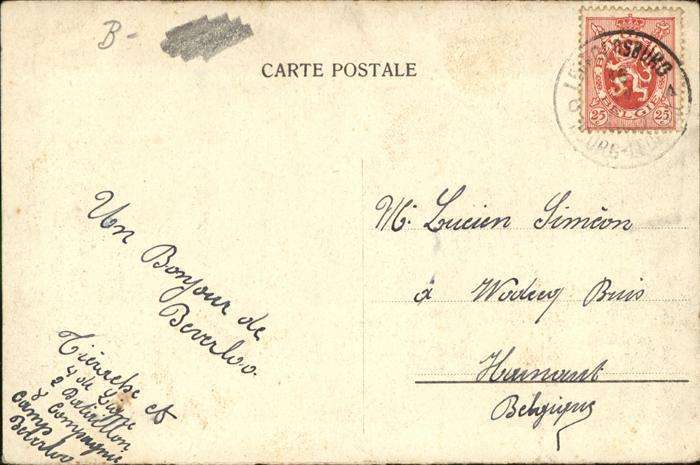 B-
CARTE POSTALE
BELGIE
25 25
Un Bonjour de
Beverloo
4 de Ligne
2 Bataillon
Compagnie
Camp
Beverloo
Mr Lucien Siméon
à Wodecq Bruis
Hainaut
Belgique